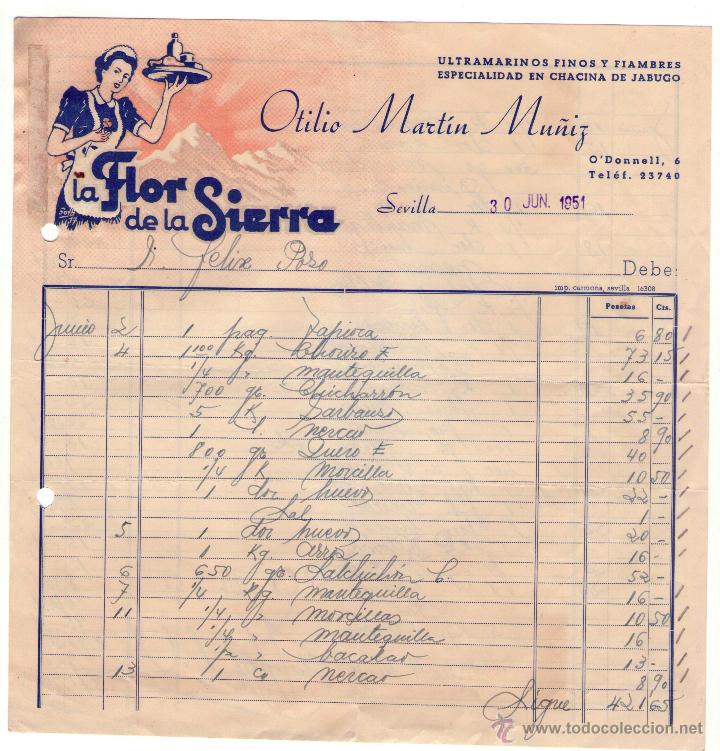 ULTRAMARINOS FINOS Y FIAMBRES
ESPECIALIDAD EN CHACINA DE JABUGO
Otilio Martín Muñiz
O'Donnell, 6
Teléf. 23740
la Flor
de la Sierra
Sevilla 30 JUN. 1951
Sr. Felix Poso Debe:
imp. carmona, sevilla 16308
Pesetas Cts.
Junio 2 1 paq. Tapioca 6 80
4 1'100 Kg. Chorizo E 73 15
1/4 " mantequilla 16 -
700 gr. Chicharrón 35 90
5 K Garbanzos 55 -
1 nercao 8 90
800 gr Queso E 40
1/4 K morcilla 10 50
1 doz huevos 22 -
Sal 1 -
5 1 doz huevos 20 -
1 Kg arroz 16 -
6 650 gr. Salchichón C. 52 -
7 1/4 Kg mantequilla 16 -
11 1/4 " morcillas 10 50
1/4 " mantequilla 16
1/2 " bacalao 13 -
13 1 nercao 8 90
Sigue 421 65
www.todocoleccion.net